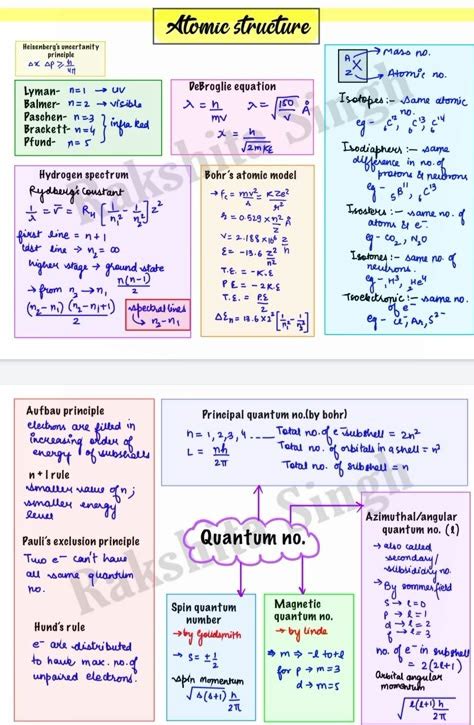 Atomic structure
Heisenberg's uncertainty
principle
Δx Δp ≥ h/4π
Lyman- n=1 → UV
Balmer- n=2 → visible
Paschen- n=3
Brackett- n=4 } infra red
Pfund- n=5
DeBroglie equation
λ = h/mv λ = √(150/V) Å
λ = h/√2mKE
A X Z → Mass no.
→ Atomic no.
Isotopes:- same atomic
no.
eg- 6C12, 6C13, 6C14
Isodiaphers :- same
difference in no. of
protons & neutrons
eg - 5B11, 6C13
Isosters :- same no. of
atoms & e-.
eg- CO2, N2O
Isotones :- same no. of
neutrons.
eg- H3, He4
Isoelectronic :- same no.
of e-
eg- Cl-, Ar, S2-
Hydrogen spectrum
Rydberg's Constant
1/λ = v̅ = RH [1/n1² - 1/n2²] z²
first line = n+1
last line → n2 = ∞
higher stage → ground state
n(n-1)/2
→ from n2 → n1
(n2-n1)(n2-n1+1)/2
spectral lines
→ n2-n1
Bohr's atomic model
→ Fc = mv²/r = KZe²/r²
r = 0.529 x n²/z Å
V = 2.188 x10⁶ z/n
E = -13.6 z²/n²
T.E. = -K.E
P.E = -2K.E
T.E. = P.E/2
ΔEn = 13.6 x z² [1/n1² - 1/n2²]
Rakshita Singh
Aufbau principle
electrons are filled in
increasing order of
energy of subshells
n + l rule
smaller value of n;
smaller energy
level
Pauli's exclusion principle
Two e- can't have
all same quantum
no.
Hund's rule
e- are distributed
to have max. no. of
unpaired electrons.
Principal quantum no.(by bohr)
n = 1, 2, 3, 4 ..... Total no. of e- subshell = 2n²
L = nh/2π Total no. of orbitals in a shell = n²
Total no. of subshell = n
Quantum no.
Rakshita Singh
Azimuthal/angular
quantum no. (l)
→ also called
secondary/
subsidiary no.
→ By sommerfield
s → l=0
p → l=1
d → l=2
f → l=3
no. of e- in subshell
= 2(2l+1)
Orbital angular
momentum
√l(l+1) h/2π
Spin quantum
number
→ by Goldsmith
→ s = ± 1/2
→ Spin momentum
√s(s+1) h/2π
Magnetic
quantum no.
→ by linde
→ m → -l to +l
for p → m=3
d → m=5